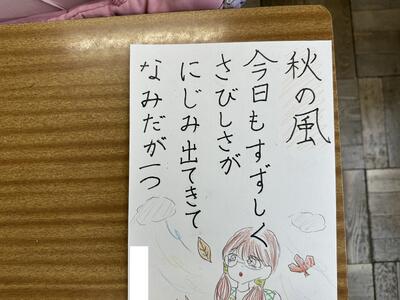 秋の風
今日もすずしく
さびしさが
にじみ出てきて
なみだが一つ